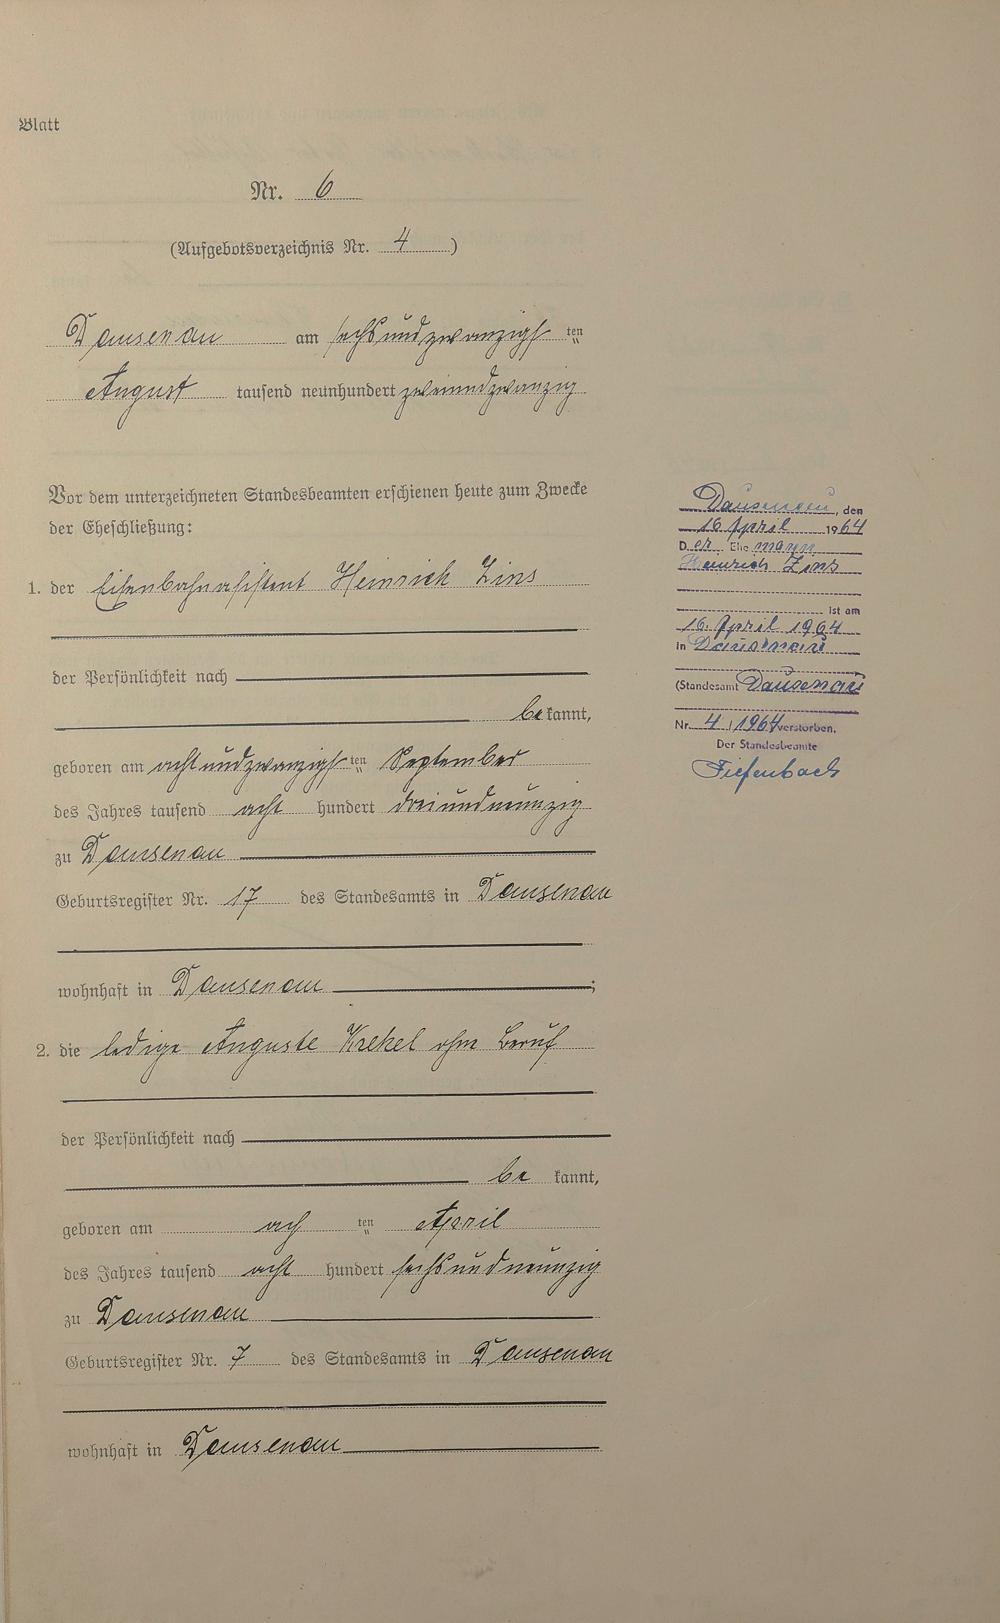 Blatt
Nr. 6
(Aufgebotsverzeichnis Nr. 4)
Dausenau am sechsundzwanzigsten
August tausend neunhundert zweiundzwanzig
Vor dem unterzeichneten Standesbeamten erschienen heute zum Zwecke
der Eheschließung:
1. der Eisenbahnassistent Heinrich Zins
der Persönlichkeit nach
bekannt,
geboren am achtundzwanzigsten September
des Jahres tausend acht hundert dreiundneunzig
zu Dausenau
Geburtsregister Nr. 17 des Standesamts in Dausenau
wohnhaft in Dausenau;
2. die ledige Auguste Krekel ohne Beruf
der Persönlichkeit nach
bekannt,
geboren am achten April
des Jahres tausend acht hundert sechsundneunzig
zu Dausenau
Geburtsregister Nr. 7 des Standesamts in Dausenau
wohnhaft in Dausenau
Dausenau, den
16 April 1964
Der Ehemann
Heinrich Zins
ist am
16. April 1964
in Dausenau
(Standesamt Dausenau
Nr. 4 / 1964 verstorben.
Der Standesbeamte
Tiefenbach